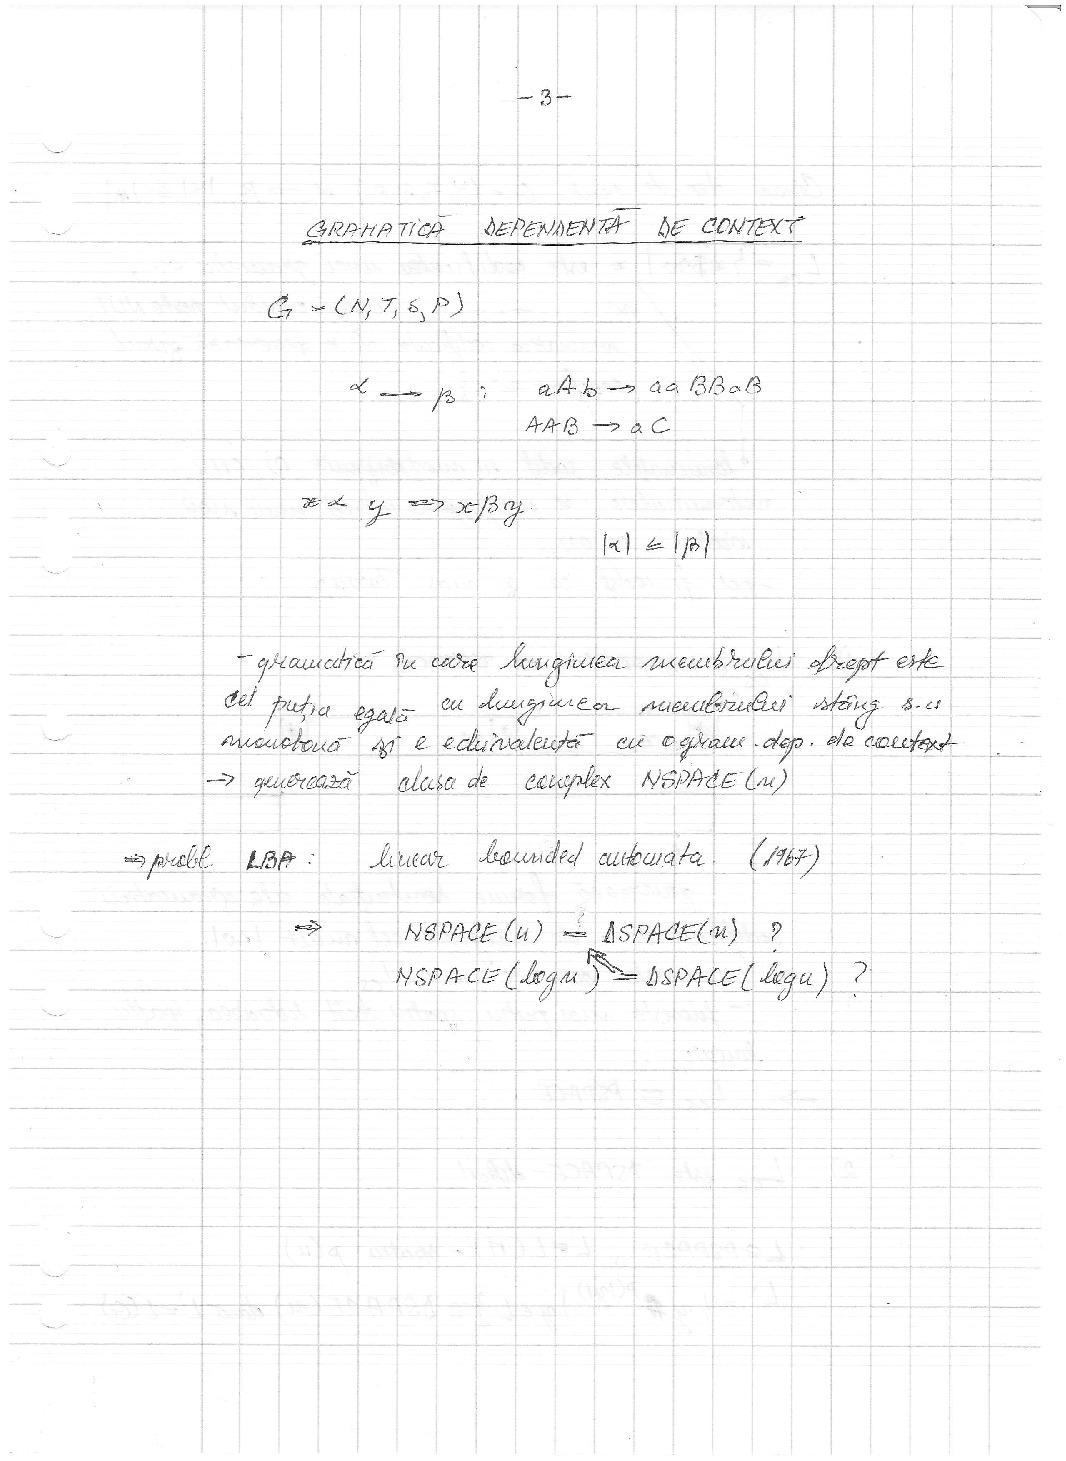 - 3 -
GRAMATICĂ DEPENDENTĂ DE CONTEXT
G = (N, T, S, P)
α → β : aAb → aaBBaB
AAB → aC
xαy ⇒ xβy
|α| ≤ |β|
- gramatică în care lungimea membrului drept este
cel puțin egală cu lungimea membrului stâng s.n
monotonă și e echivalentă cu o gram. dep. de context
→ generează clasa de complex NSPACE(n)
⇒ probl LBA : linear bounded automata. (1967)
⇒ NSPACE(n) = DSPACE(n) ?
NSPACE(log n) = DSPACE(log n) ?